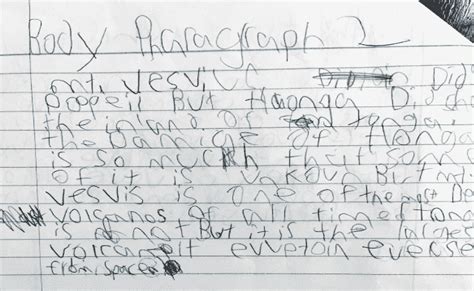 Body Pharagraph 2
mnt, vesviUs Did
Dope il But Honga Did
the inland of tonga.
the Damige of Honga
is so much that som
of it is unkoun Birt mt.
vesvis is one of the most De
volcanos of all time tong
is not But it is the larges
volcan it evvetoin everse
from space